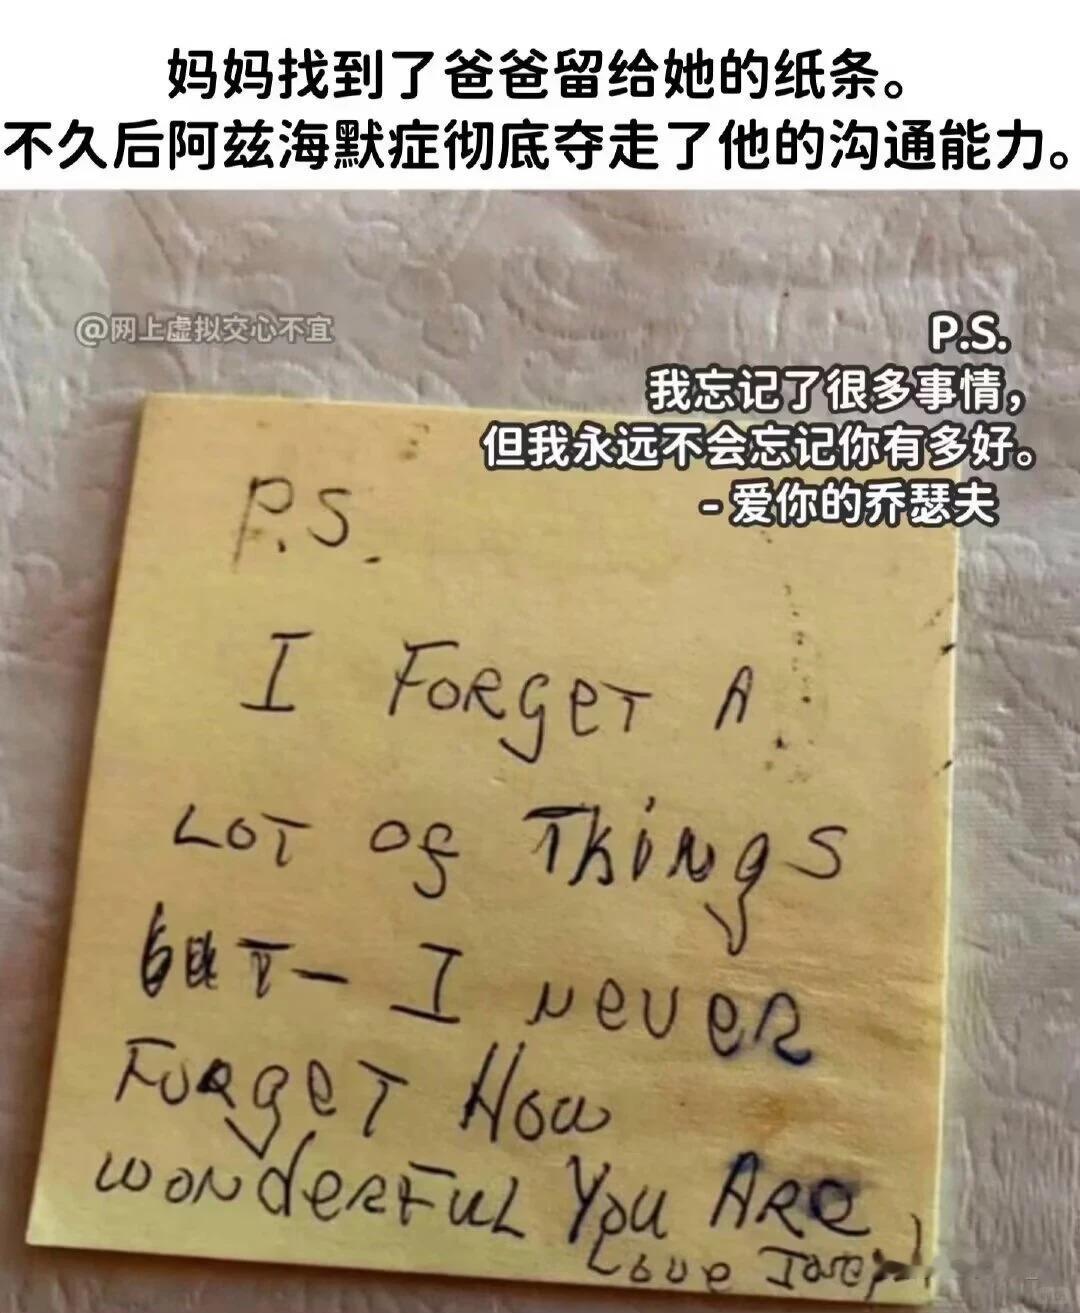 妈妈找到了爸爸留给她的纸条。
不久后阿兹海默症彻底夺走了他的沟通能力。
@网上虚拟交心不宜
P.S.
我忘记了很多事情，
但我永远不会忘记你有多好。
- 爱你的乔瑟夫
P.S.
I FORgeT A
LOT Of ThiNgS
buT- I NeveR
FoRgeT How
woNdeRFuL You ARe
Love Joseph